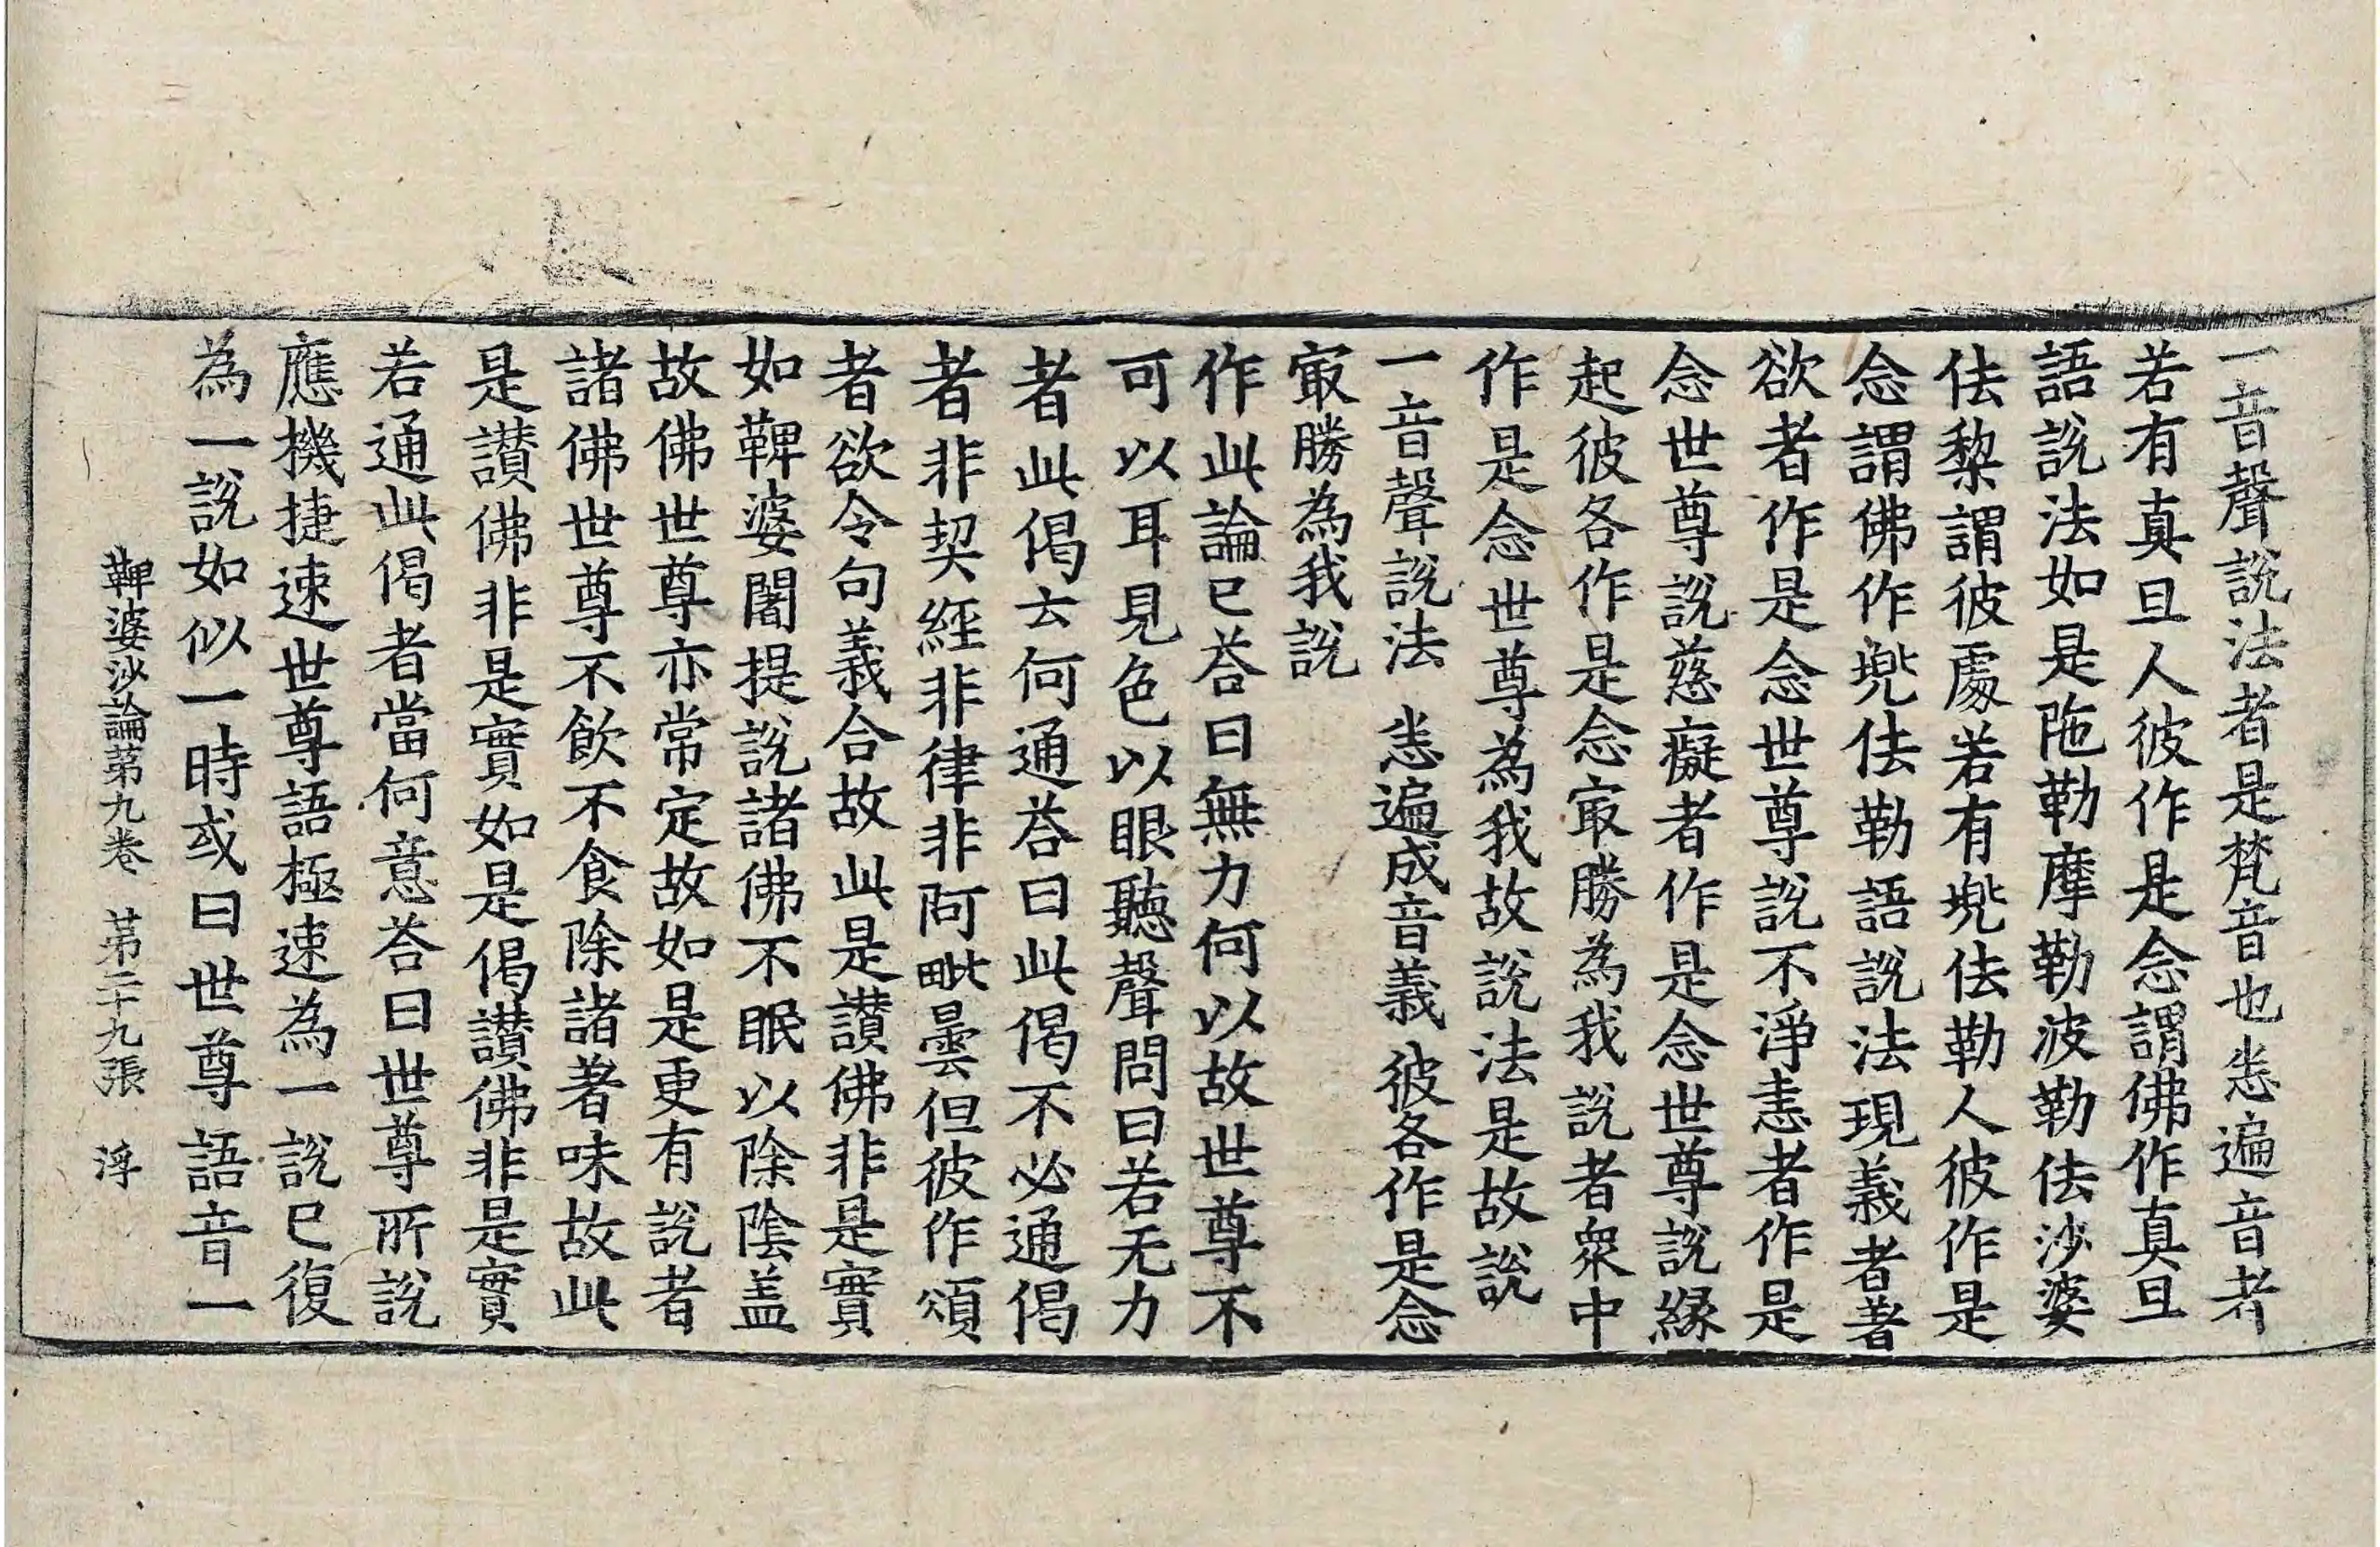 一音聲說法者是梵音也悉遍音者
若有真旦人彼作是念謂佛作真旦
語說法如是陁勒摩勒波勒佉沙婆
佉黎謂彼處若有兠佉勒人彼作是
念謂佛作兠佉勒語說法現義者著
欲者作是念世尊說不淨恚者作是
念世尊說慈癡者作是念世尊說緣
起彼各作是念㝡勝為我說者衆中
作是念世尊為我故說法是故說
一音聲說法 悉遍成音義 彼各作是念
㝡勝為我說
作此論已荅曰無力何以故世尊不
可以耳見色以眼聽聲問曰若无力
者此偈云何通荅曰此偈不必通偈
者非契經非律非阿毗曇但彼作頌
者欲令句義合故此是讃佛非是實
如鞞婆闍提說諸佛不眠以除陰盖
故佛世尊亦常定故如是更有說者
諸佛世尊不飲不食除諸著味故此
是讃佛非是實如是偈讃佛非是實
若通此偈者當何意荅曰世尊所說
應機捷速世尊語極速為一說已復
為一說如似一時或曰世尊語音一
鞞婆沙論第九卷 第二十九張 浮